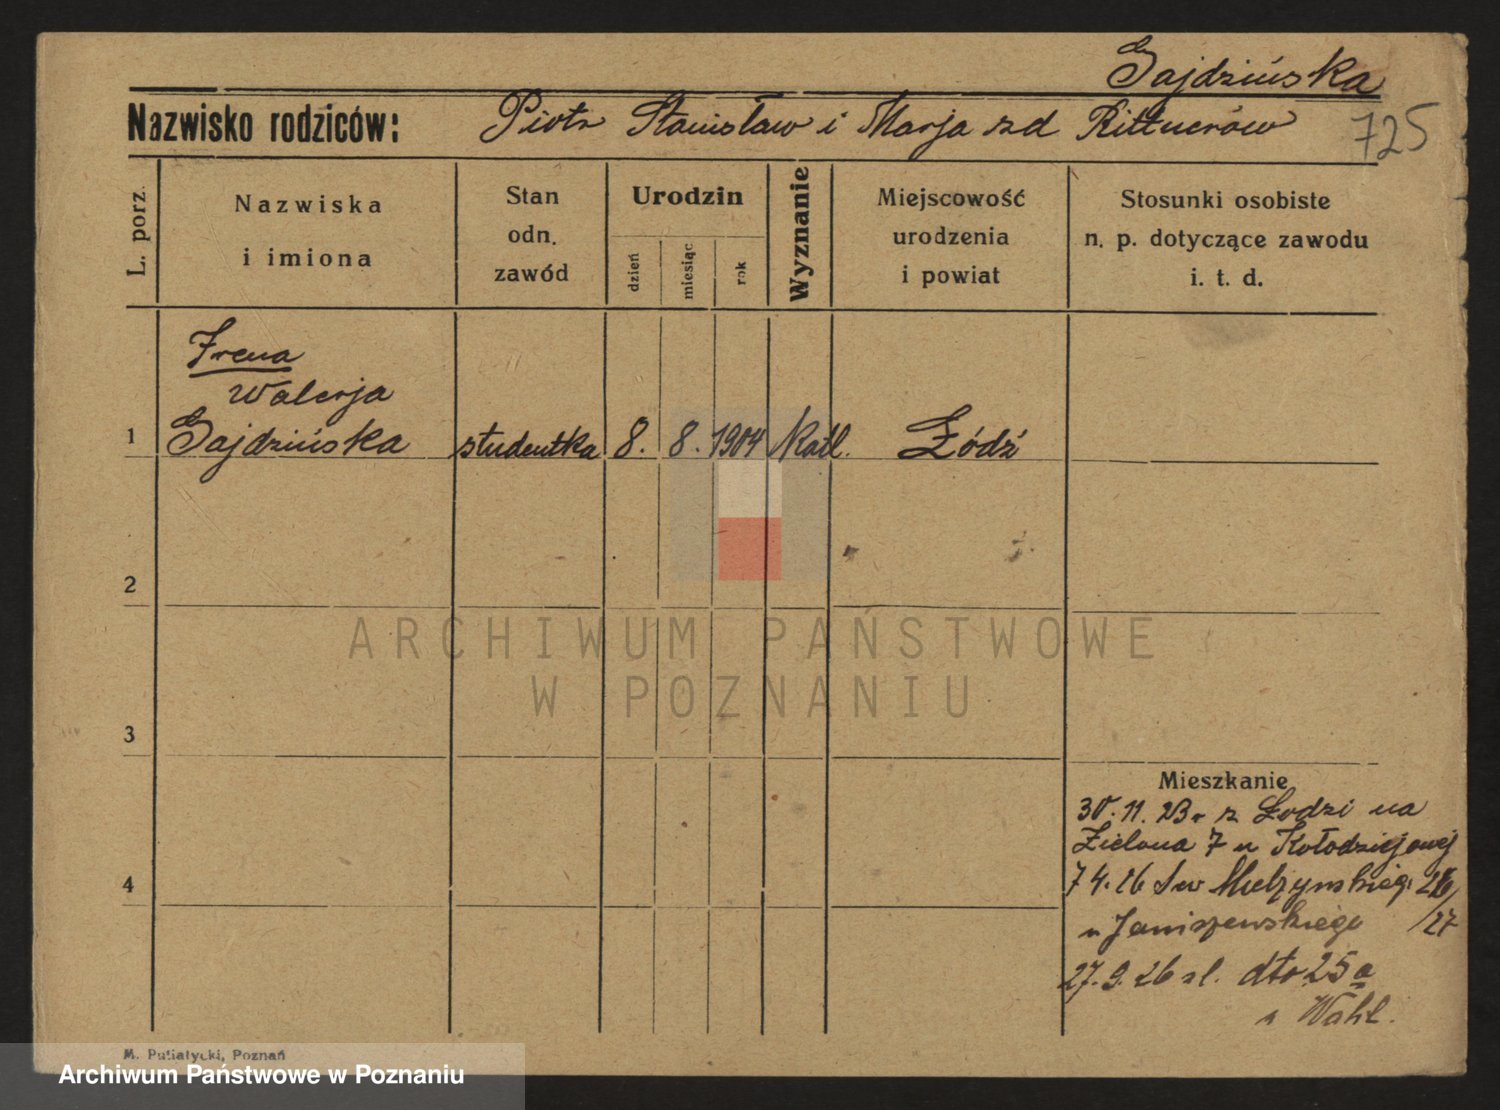 Gajdzińska
Nazwisko rodziców: Piotr Stanisław i Marja zd Rittnerów
725
L. porz.
Nazwiska
i imiona
Stan
odn.
zawód
Urodzin
dzień
miesiąc
rok
Wyznanie
Miejscowość
urodzenia
i powiat
Stosunki osobiste
n. p. dotyczące zawodu
i. t. d.
Irena
Walerja
1 Gajdzińska studentka 8. 8. 1904 Katl. Łódź
2
ARCHIWUM PAŃSTWOWE
W POZNANIU
3
Mieszkanie
30.11.23r z Łodzi na
Zielona 7 u Kołodziejowej
4
7 4.26 Sew Mielżyńskiego 26/
/27
u Janiszewskiego
27.9.26 sl. dto 25a
u Wahl.
M. Putiatycki, Poznań
Archiwum Państwowe w Poznaniu